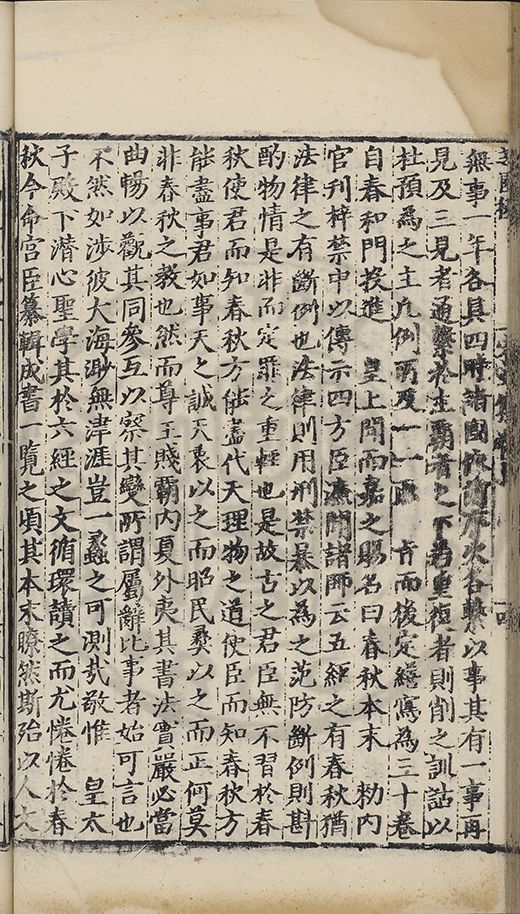 無事一年各具四時諸國依前序次各繫以事其有一事再
見及三見者通繫於主霸者之下若重復者則削之訓詁以
杜預為之主凡例所及一一取　旨而後定繕寫為三十卷
自春和門投進　皇上聞而嘉之賜名曰春秋本末　勑內
官刊梓禁中以傳示四方臣濂聞諸師云五經之有春秋猶
法律之有斷例也法律則用刑禁暴以為之范防斷例則斟
酌物情是非而定罪之重輕也是故古之君臣無不習於春
秋使君而知春秋方能盡代天理物之道使臣而知春秋方
能盡事君如事天之誠天衷以之而昭民彝以之而正何莫
非春秋之教也然而尊王賤霸內夏外夷其書法實嚴必當
曲暢以觀其同參互以察其變所謂屬辭比事者始可言也
不然如涉彼大海渺無津涯豈一蠡之可測哉敬惟　皇太
子殿下潛心聖學其於六經之文循環讀之而尤惓惓於春
秋今命宮臣纂輯成書一覽之頃其本末瞭然斯殆以人文